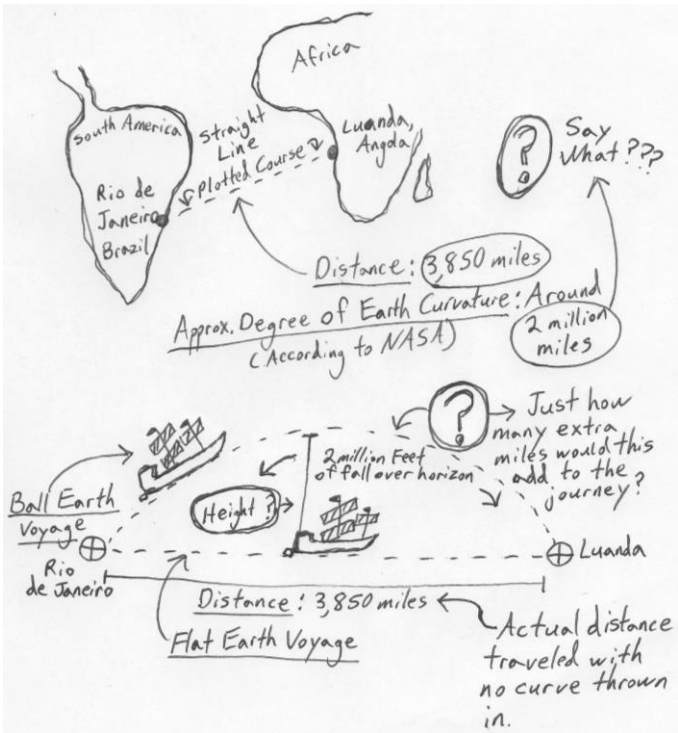 Africa
South America
Straight
Line
Plotted Course
Luanda,
Angola
?
Say
What???
Rio de
Janeiro
Brazil
Distance: 3,850 miles
Approx. Degree of Earth Curvature: Around
2 million
miles
(According to NASA)
?
Just how
many extra
miles would this
add to the
journey?
2 million Feet
of fall over horizon
Height?
Ball Earth
Voyage
Rio
de Janeiro
Luanda
Distance: 3,850 miles
Flat Earth Voyage
Actual distance
traveled with
no curve thrown
in.